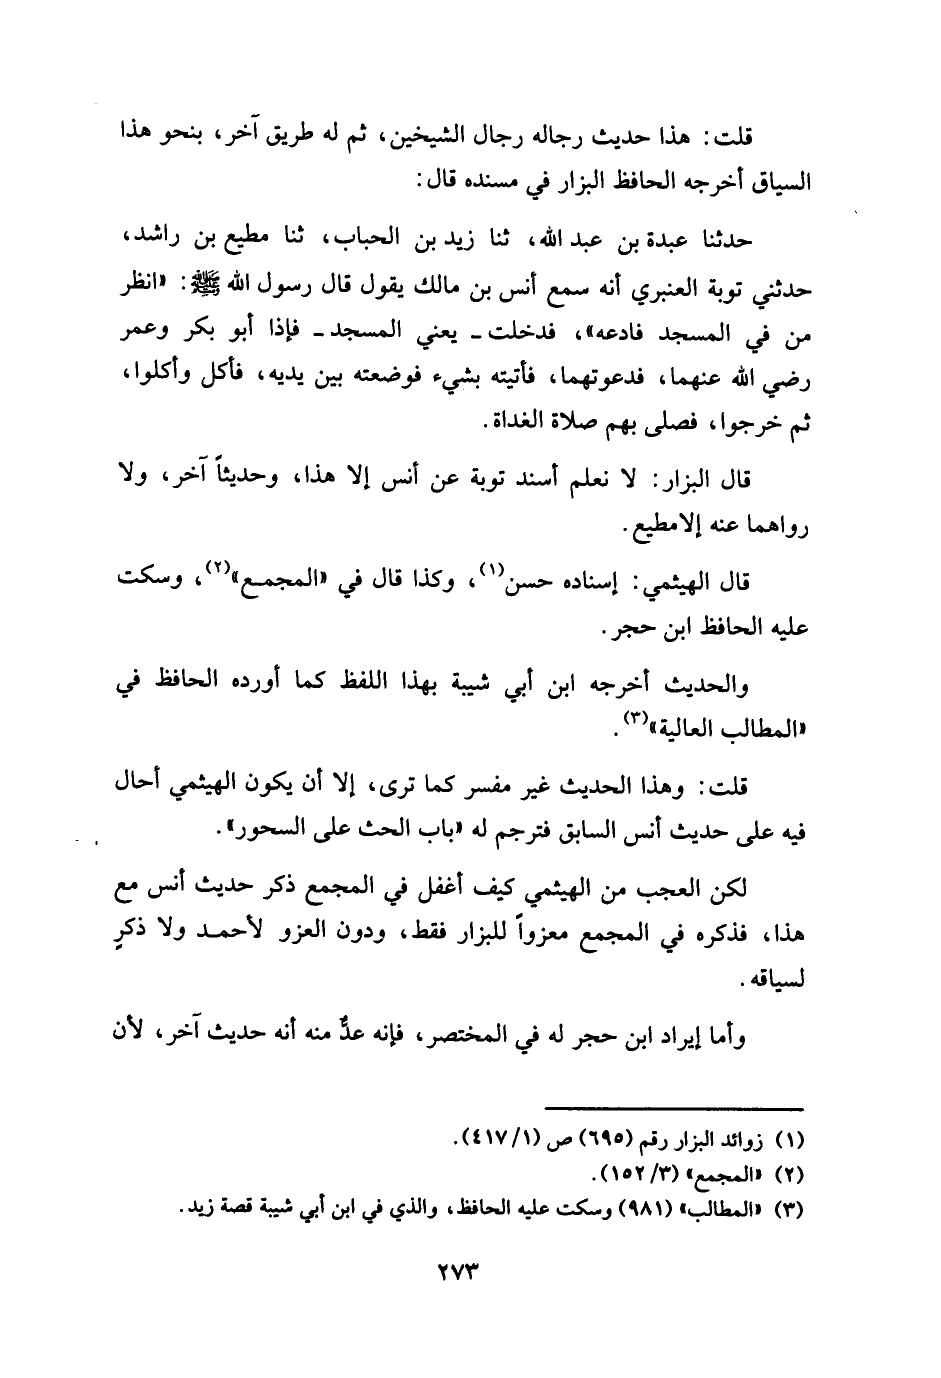 قلت: هذا حديث رجاله رجال الشيخين، ثم له طريق آخر، بنحو هذا
السياق أخرجه الحافظ البزار في مسنده قال:
حدثنا عبدة بن عبد الله، ثنا زيد بن الحباب، ثنا مطيع بن راشد،
حدثني توبة العنبري أنه سمع أنس بن مالك يقول قال رسول الله ﷺ: «انظر
من في المسجد فادعه»، فدخلت ـ يعني المسجد ـ فإذا أبو بكر وعمر
رضي الله عنهما، فدعوتهما، فأتيته بشيء فوضعته بين يديه، فأكل وأكلوا،
ثم خرجوا، فصلى بهم صلاة الغداة.
قال البزار: لا نعلم أسند توبة عن أنس إلا هذا، وحديثاً آخر، ولا
رواهما عنه إلامطيع.
قال الهيثمي: إسناده حسن(١)، وكذا قال في «المجمع»(٢)، وسكت
عليه الحافظ ابن حجر.
والحديث أخرجه ابن أبي شيبة بهذا اللفظ كما أورده الحافظ في
«المطالب العالية»(٣).
قلت: وهذا الحديث غير مفسر كما ترى، إلا أن يكون الهيثمي أحال
فيه على حديث أنس السابق فترجم له «باب الحث على السحور».
لكن العجب من الهيثمي كيف أغفل في المجمع ذكر حديث أنس مع
هذا، فذكره في المجمع معزواً للبزار فقط، ودون العزو لأحمد ولا ذكرٍ
لسياقه.
وأما إيراد ابن حجر له في المختصر، فإنه عدٌّ منه أنه حديث آخر، لأن
(١) زوائد البزار رقم (٦٩٥) ص (٤١٧/١).
(٢) «المجمع» (١٥٢/٣).
(٣) «المطالب» (٩٨١) وسكت عليه الحافظ، والذي في ابن أبي شيبة قصة زيد.
٢٧٣